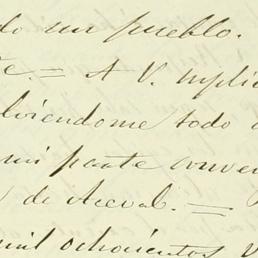 do un pueblo.
te. = A V. suplic
lviendome todo
mi parte conven
de Aceval. =
mil ochocientos v